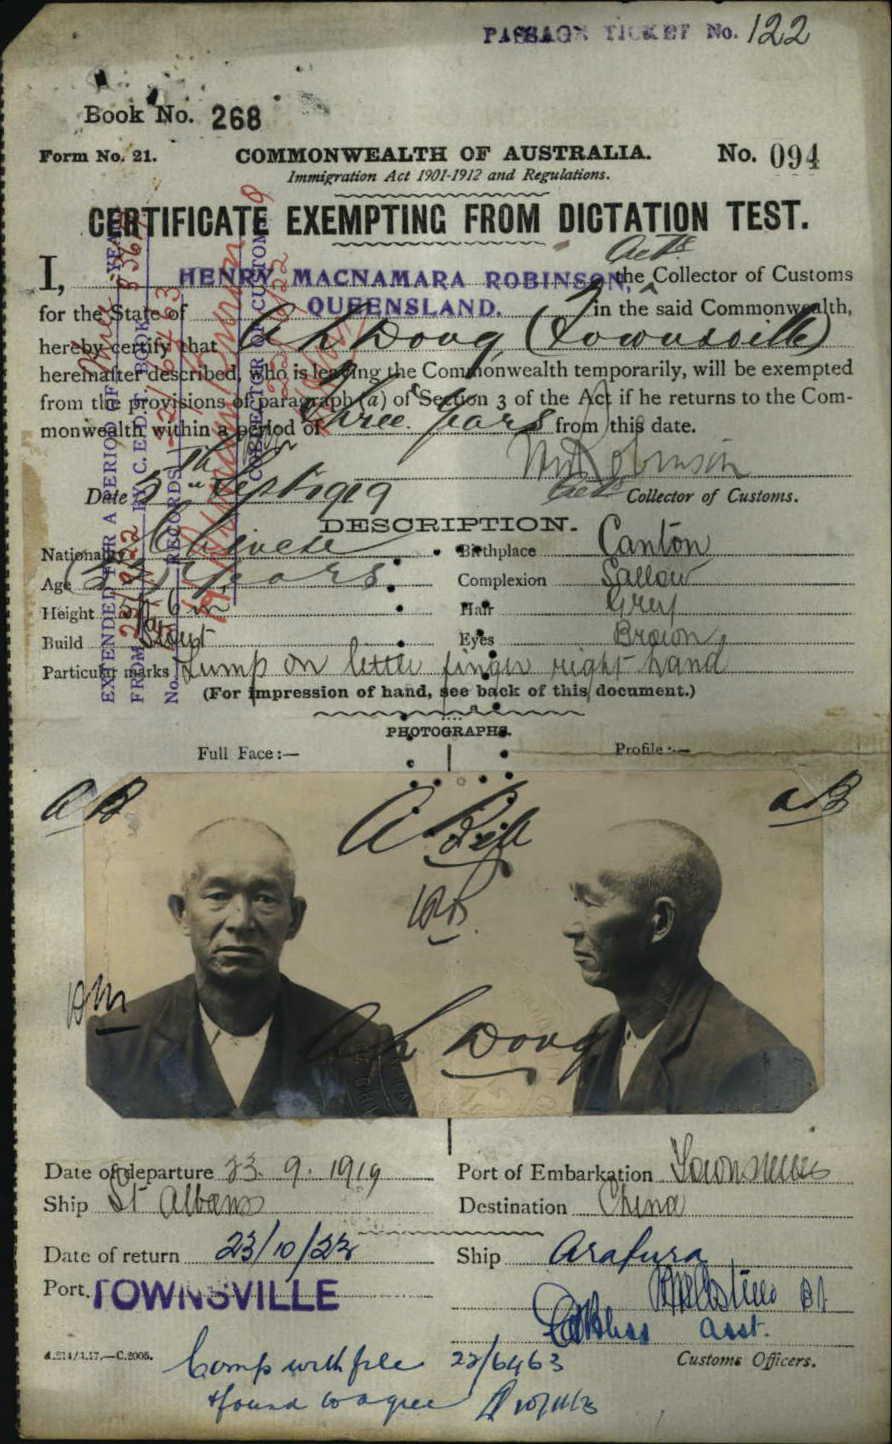 PASSAGE TICKET No. 122
Book No. 268
Form No. 21. COMMONWEALTH OF AUSTRALIA. No. 094
Immigration Act 1901-1912 and Regulations.
CERTIFICATE EXEMPTING FROM DICTATION TEST.
Actg
I, HENRY MACNAMARA ROBINSON, the Collector of Customs
for the State of QUEENSLAND. in the said Commonwealth,
hereby certify that Ah Doug (Townsville)
hereinafter described, who is leaving the Commonwealth temporarily, will be exempted
from the provisions of paragraph (a) of Section 3 of the Act if he returns to the Com-
monwealth within a period of Three years from this date.
Robinson
Date 5th Sept 1919 Actg Collector of Customs.
EXTENDED FOR A PERIOD OF YEAR
FROM BY C.E.D.T. BOOK
No. RECORDS
COLLECTOR OF CUSTOMS
DESCRIPTION.
Nationality Chinese Birthplace Canton
Age years Complexion Sallow
Height 5ft 6 in Hair Grey
Build Stout Eyes Brown
Particular marks Lump on little finger right hand
(For impression of hand, see back of this document.)
PHOTOGRAPHS.
Full Face:— Profile:—
Ah Doug
Date of departure 23. 9. 1919 Port of Embarkation Townsville
Ship St Albans Destination China
Date of return 23/10/22 Ship Arafura
Port TOWNSVILLE
Asst.
C.2005. Customs Officers.
Comp with file 22/6463
& found to agree